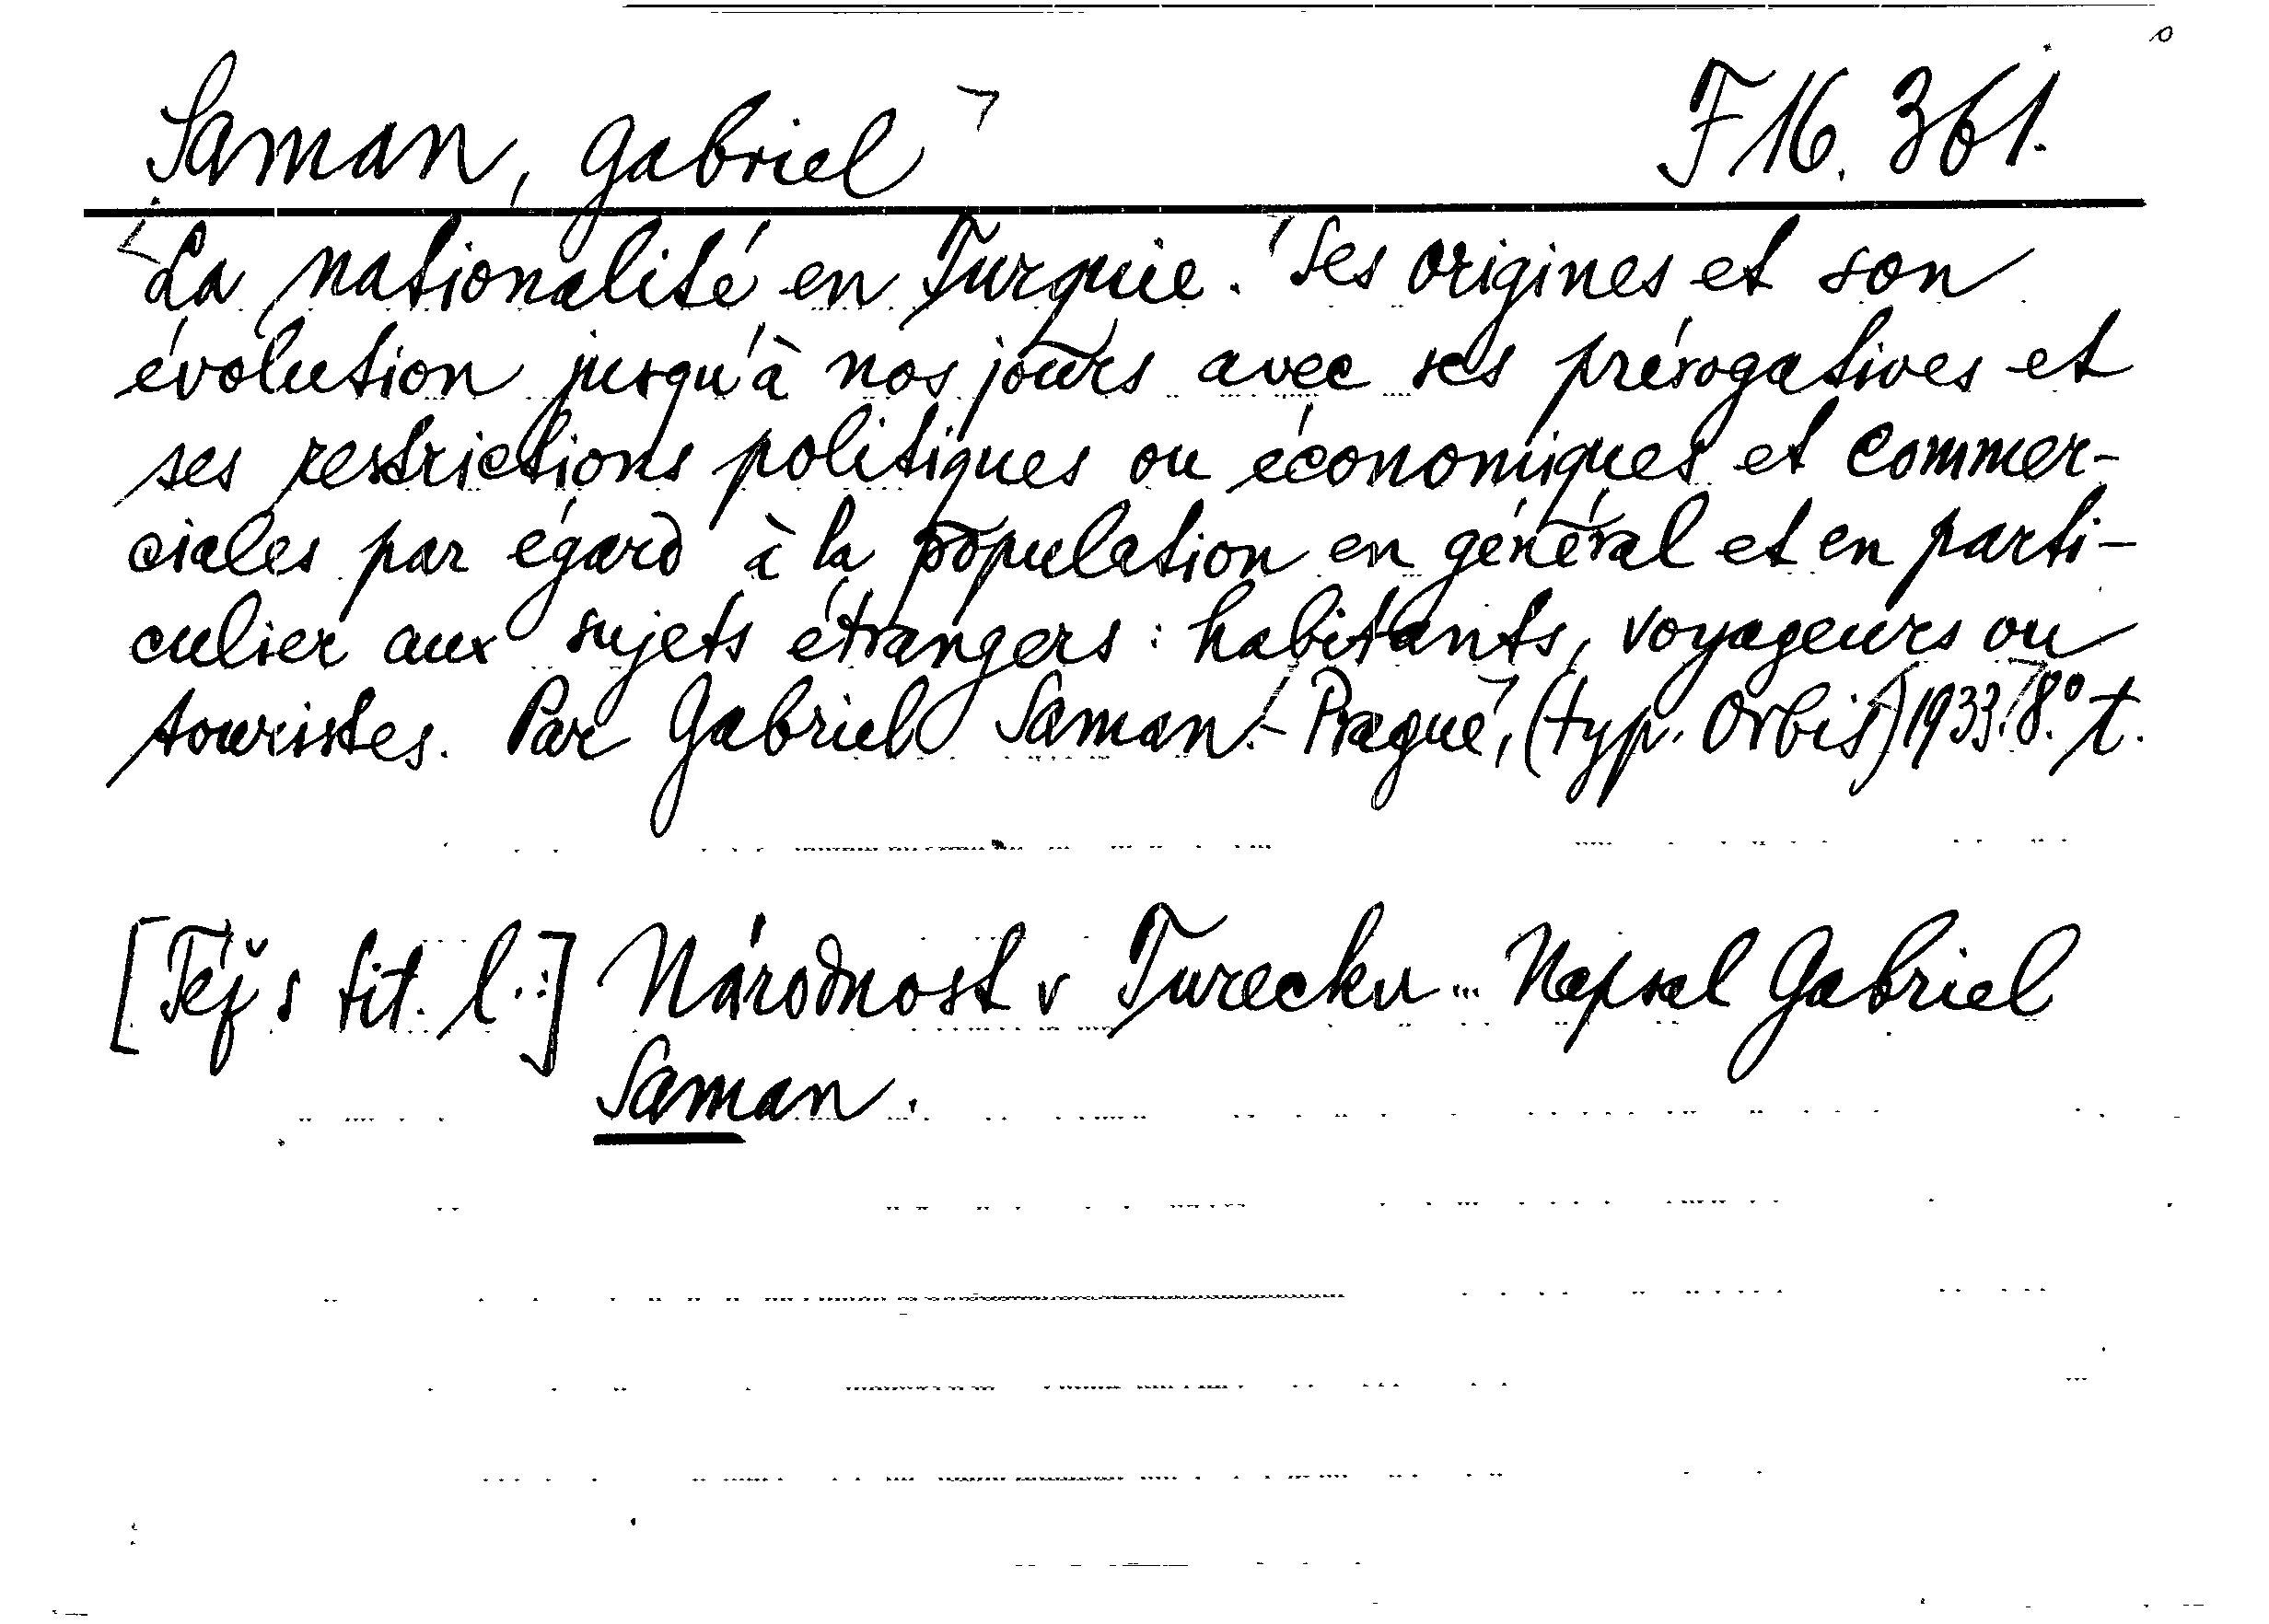 Saman, Gabriel F 16. 361.
La nationalité en Turquie. Ses origines et son
évolution jusqu'à nos jours avec ses prérogatives et
ses restrictions politiques ou économiques et commer-
ciales par égard à la population en général et en parti-
culier aux sujets étrangers: habitants, voyageurs ou
touristes. Par Gabriel Saman. - Prague, (typ. Orbis) 1933. 8° t.
[Též s tit. l.:] Národnost v Turecku... Napsal Gabriel
Saman.